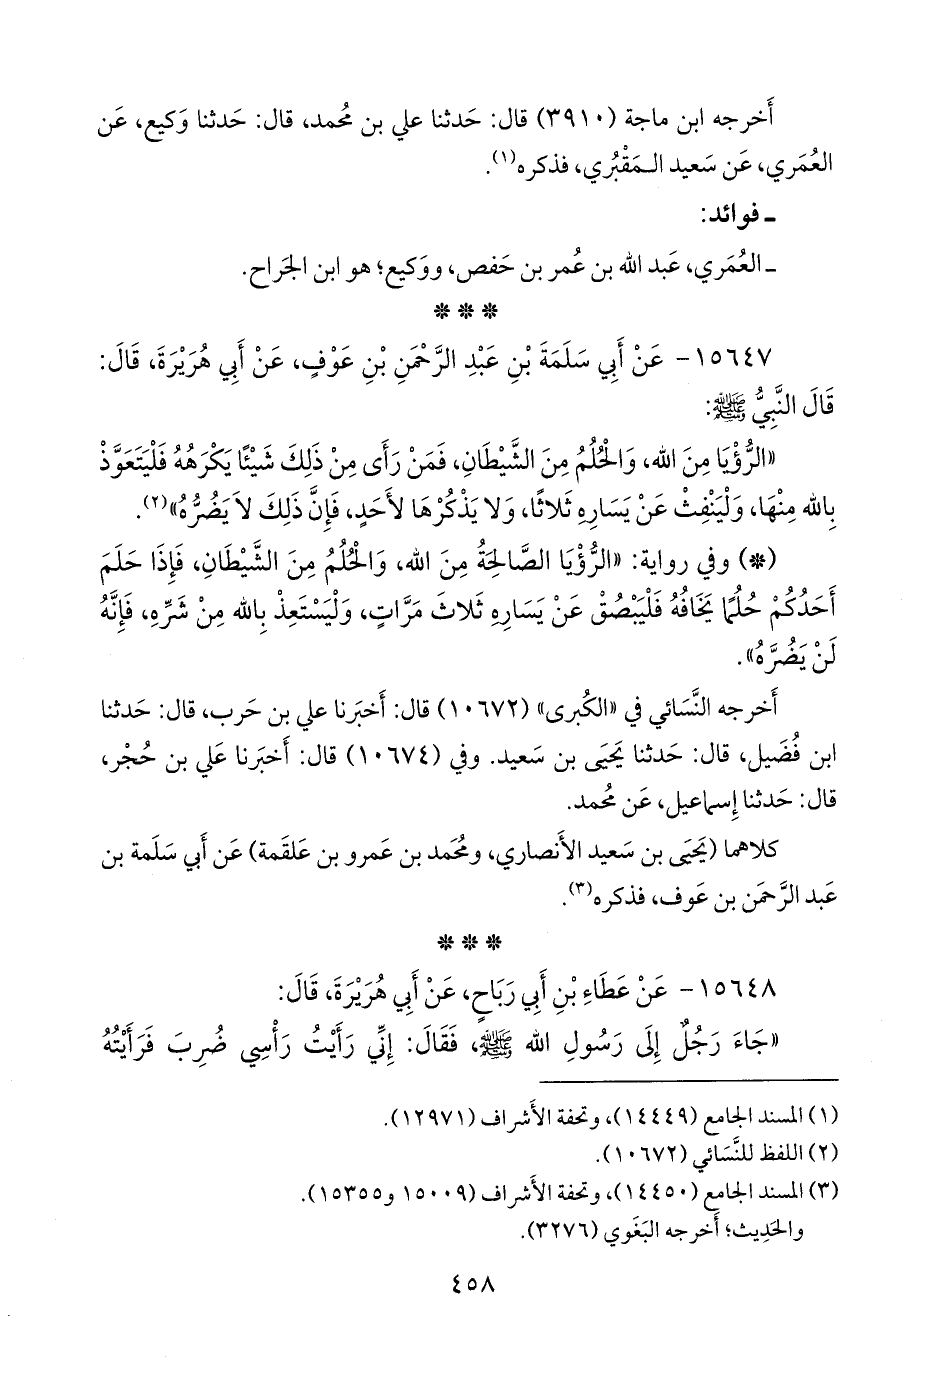 أَخرجه ابن ماجة (٣٩١٠) قال: حَدثنا علي بن مُحمد، قال: حَدثنا وَكيع، عَن
العُمَري، عَن سَعيد المَقْبُري، فذكره(١).
ـ فوائد:
ـ العُمَري، عَبد الله بن عُمر بن حَفص، ووَكيع؛ هو ابن الجَراح.
* * *
١٥٦٤٧- عَنْ أَبِي سَلَمَةَ بْنِ عَبْدِ الرَّحْمَنِ بْنِ عَوْفٍ، عَنْ أَبِي هُرَيْرَةَ، قَالَ:
قَالَ النَّبِيُّ ﷺ:
«الرُّؤْيَا مِنَ الله، وَالْحُلُمُ مِنَ الشَّيْطَانِ، فَمَنْ رَأَى مِنْ ذَلِكَ شَيْئًا يَكْرَهُهُ فَلْيَتَعَوَّذْ
بِالله مِنْهَا، وَلْيَنْفِثْ عَنْ يَسَارِهِ ثَلَاثًا، وَلَا يَذْكُرْهَا لأَحَدٍ، فَإِنَّ ذَلِكَ لَا يَضُرُّهُ»(٢).
(*) وفي رواية: «الرُّؤْيَا الصَّالِحَةُ مِنَ الله، وَالْحُلُمُ مِنَ الشَّيْطَانِ، فَإِذَا حَلَمَ
أَحَدُكُمْ حُلُمًا يَخَافُهُ فَلْيَبْصُقْ عَنْ يَسَارِهِ ثَلَاثَ مَرَّاتٍ، وَلْيَسْتَعِذْ بِالله مِنْ شَرِّهِ، فَإِنَّهُ
لَنْ يَضُرَّهُ».
أَخرجه النَّسَائي في «الكُبرى» (١٠٦٧٢) قال: أَخبَرنا علي بن حَرب، قال: حَدثنا
ابن فُضَيل، قال: حَدثنا يَحيَى بن سَعيد. وفي (١٠٦٧٤) قال: أَخبَرنا عَلي بن حُجْر،
قال: حَدثنا إِسماعيل، عَن مُحمد.
كلاهما (يَحيَى بن سَعيد الأَنصاري، ومُحمد بن عَمرو بن عَلقَمة) عَن أَبي سَلَمة بن
عَبد الرَّحمَن بن عَوف، فذكره(٣).
* * *
١٥٦٤٨- عَنْ عَطَاءِ بْنِ أَبِي رَبَاحٍ، عَنْ أَبِي هُرَيْرَةَ، قَالَ:
«جَاءَ رَجُلٌ إِلَى رَسُولِ الله ﷺ، فَقَالَ: إِنِّي رَأَيْتُ رَأْسِي ضُرِبَ فَرَأَيْتُهُ
(١) المسند الجامع (١٤٤٤٩)، وتحفة الأَشراف (١٢٩٧١).
(٢) اللفظ للنَّسَائي (١٠٦٧٢).
(٣) المسند الجامع (١٤٤٥٠)، وتحفة الأَشراف (١٥٠٠٩ و١٥٣٥٥).
والحَدِيث؛ أَخرجه البَغَوي (٣٢٧٦).
٤٥٨